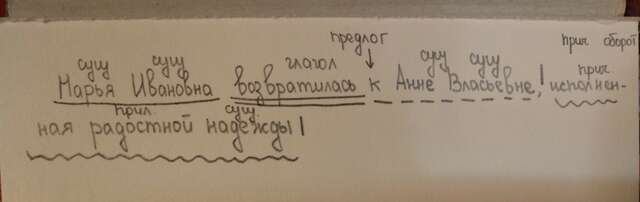 предлог прич оборот
сущ сущ глагол сущ сущ прич.
Марья Ивановна возвратилась к Анне Власьевне, исполнен-
прил. сущ.
ная радостной надежды